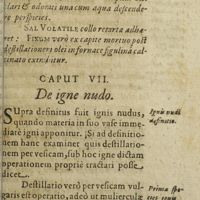 clari & odorati una cum aqua descende-
re perspicies.
SAL VOLATILE collo retortæ adhæ-
ret: FIXUM verò ex capite mortuo post
destillationem olei in fornace figulina cal-
cinato extrahitur.
CAPUT VII.
De igne nudo.
Supra definitus fuit ignis nudus,
quando materia in suo vase imme-
diatè igni apponitur. Si ad definitio-
nem hanc examiner quis destillatio-
nem per vesicam, sub hoc igne dictam
operationem propriè tractari posse
dicet.
Destillatio verò per vesicam vul-
garis est operatio, adeò ut mulierculæ
Ignis nudi
definitio.
Prima spe-
cies ignis